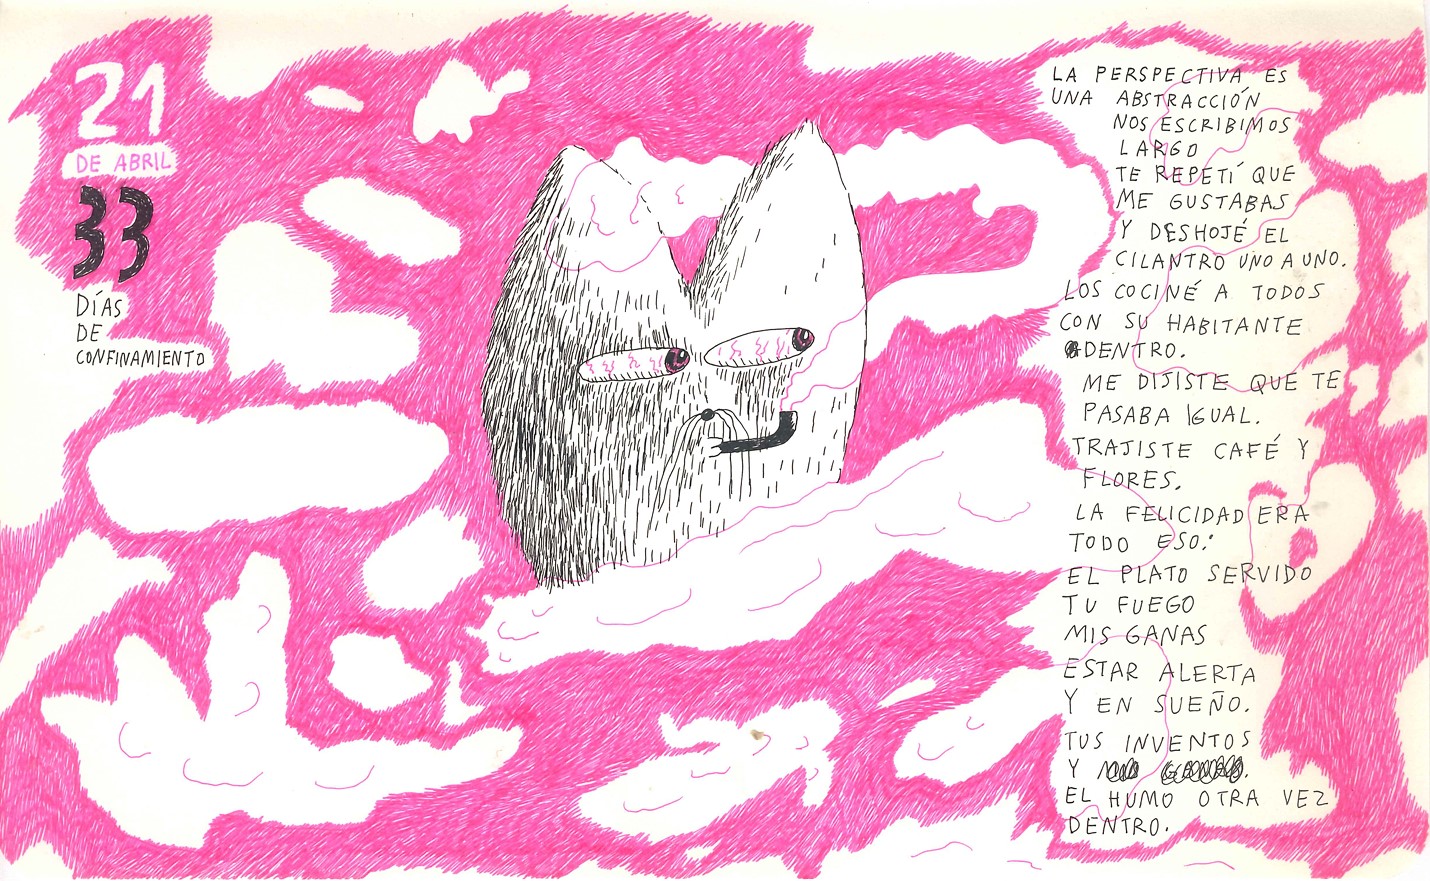 21
DE ABRIL
33
DÍAS
DE
CONFINAMIENTO
LA PERSPECTIVA ES
UNA ABSTRACCIÓN
NOS ESCRIBIMOS
LARGO
TE REPETÍ QUE
ME GUSTABAS
Y DESHOJÉ EL
CILANTRO UNO A UNO.
LOS COCINÉ A TODOS
CON SU HABITANTE
DENTRO.
ME DIJISTE QUE TE
PASABA IGUAL.
TRAJISTE CAFÉ Y
FLORES.
LA FELICIDAD ERA
TODO ESO:
EL PLATO SERVIDO
TU FUEGO
MIS GANAS
ESTAR ALERTA
Y EN SUEÑO.
TUS INVENTOS
Y
EL HUMO OTRA VEZ
DENTRO.